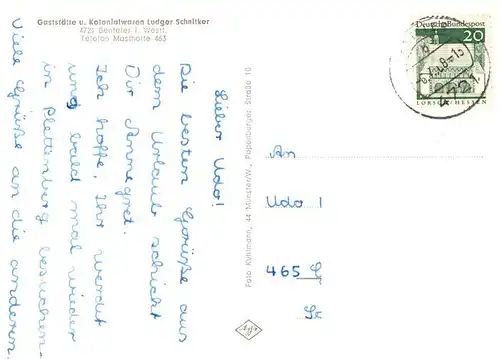 Gaststätte u. Kolonialwaren Ludger Schnitker
4721 Benteler i. Westf.
Telefon Mastholte 463
Lieber Udo!
Die besten Grüße aus
dem Urlaub schickt
Dir Annegret.
Ich hoffe, Ihr werdet
uns bald mal wieder
in Plettenberg besuchen.
Viele Grüße an die anderen.
Foto Kuhlmann, 44 Münster/W., Papenburger Straße 10
Deutsche Bundespost
20
LORSCH/HESSEN
4721
An
Udo
465